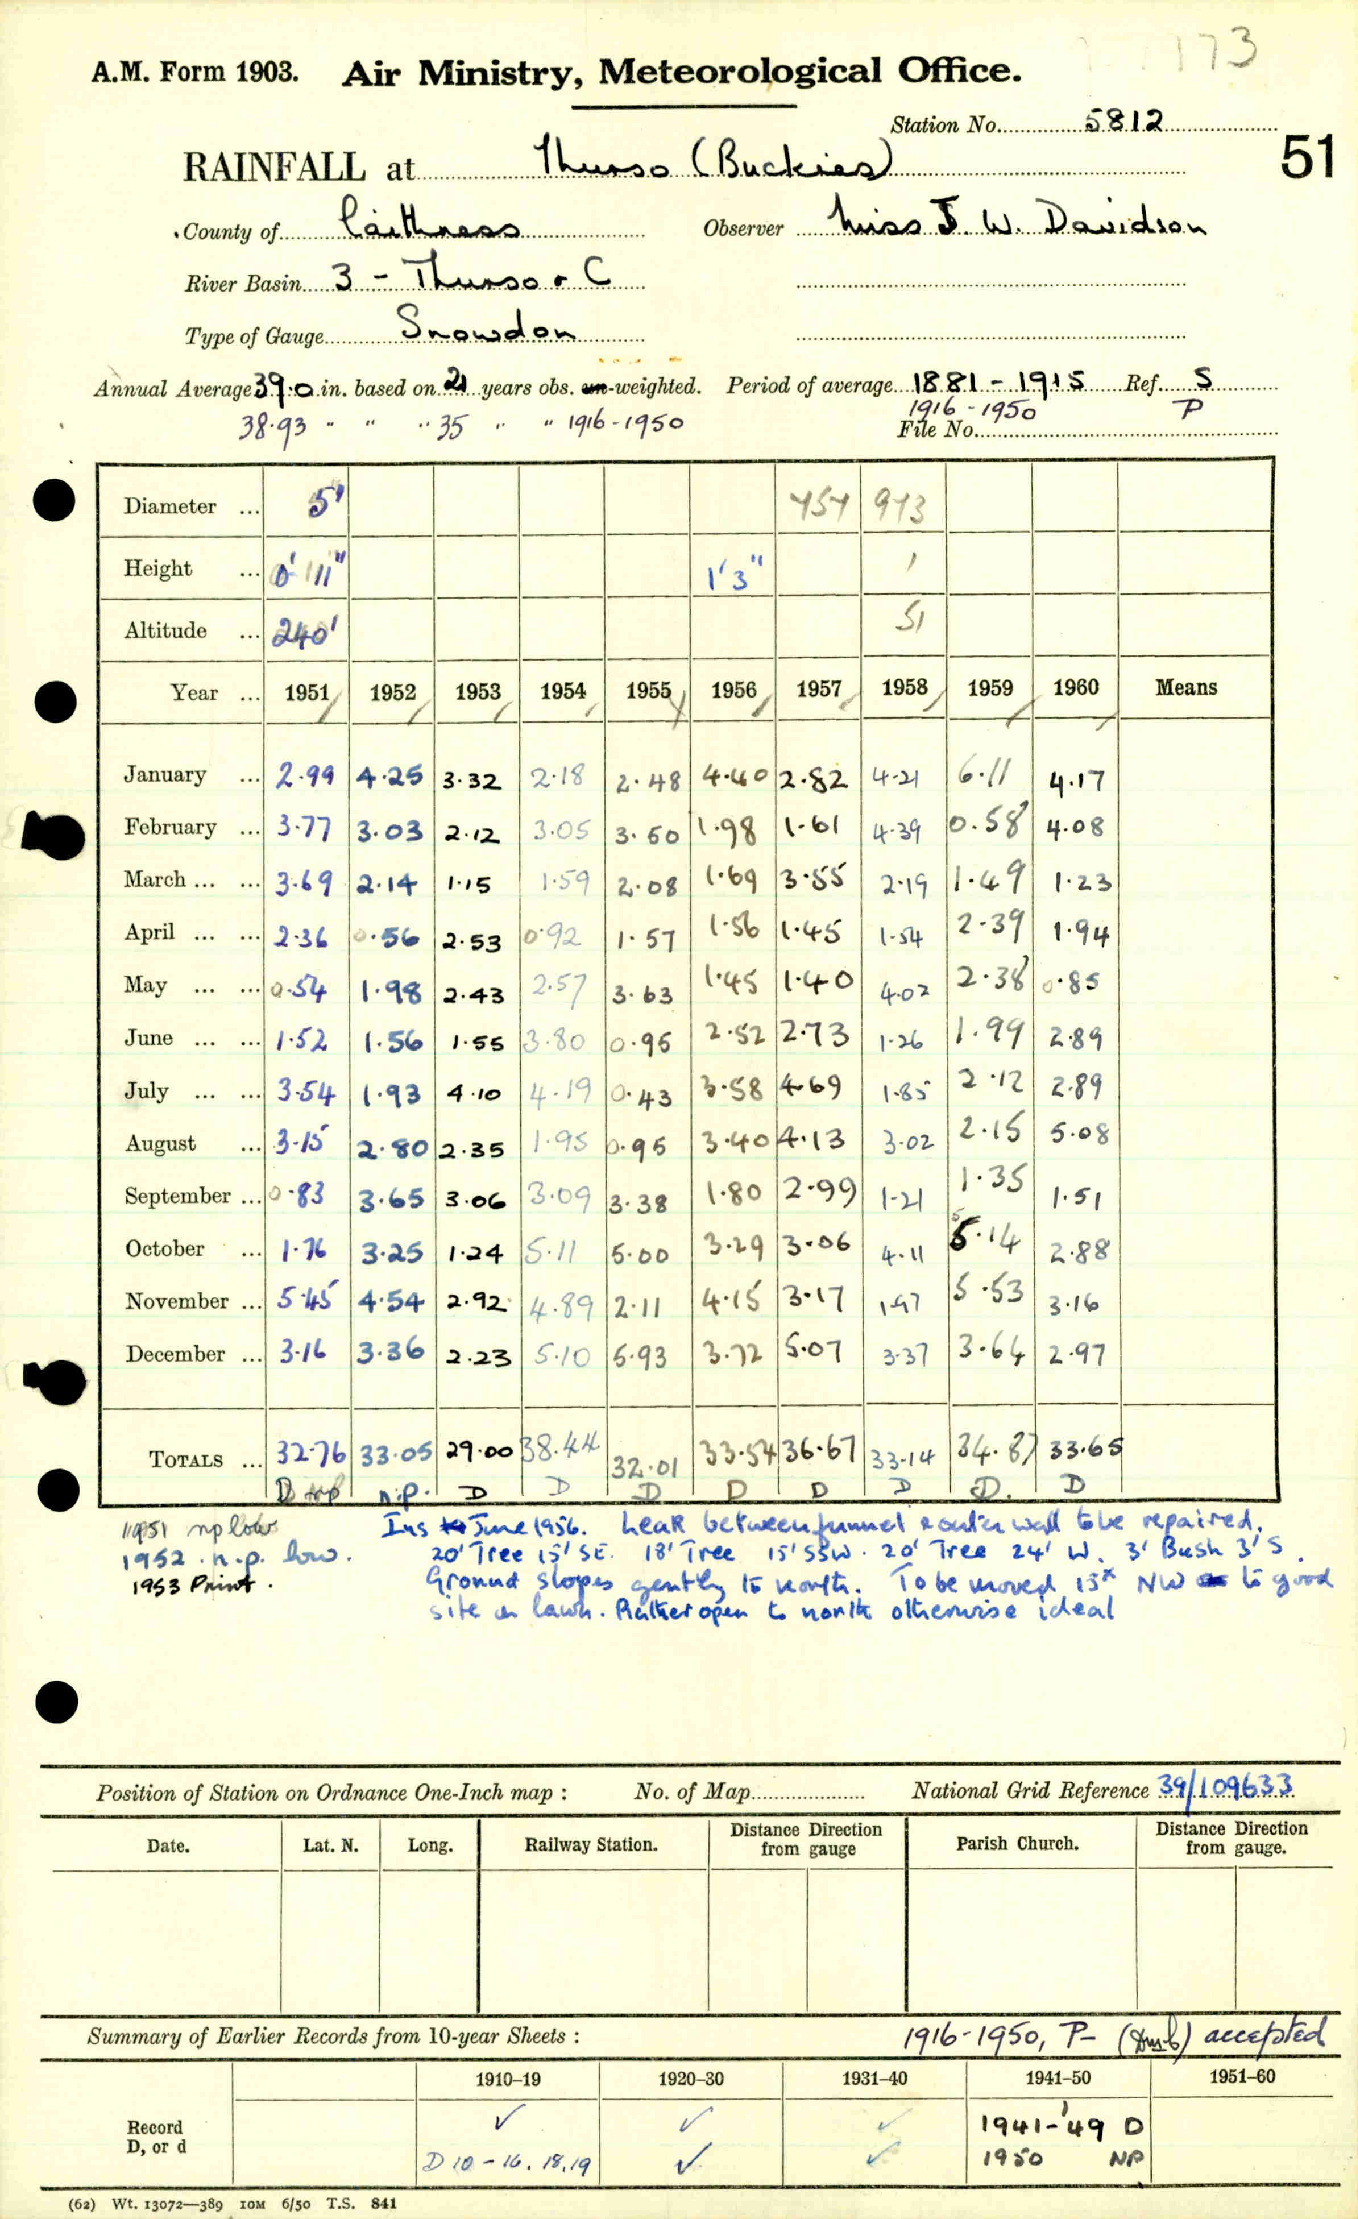 173
A.M. Form 1903. Air Ministry, Meteorological Office.
Station No. 5812
51
RAINFALL at Thurso (Buckies)
County of Caithness Observer Miss J. W. Davidson
River Basin 3 - Thurso & C
Type of Gauge Snowdon
Annual Average 39.0 in. based on 21 years obs. un-weighted. Period of average 1881-1915 Ref. S
38.93 " " " 35 " " 1916-1950 1916-1950 P
File No.
Diameter ... 5" 457 973
Height ... 0' 11" 1' 3" 1
Altitude ... 240' 51
Year ... 1951 1952 1953 1954 1955 1956 1957 1958 1959 1960 Means
January ... 2.99 4.25 3.32 2.18 2.48 4.40 2.82 4.21 6.11 4.17
February ... 3.77 3.03 2.12 3.05 3.50 1.98 1.61 4.39 0.58 4.08
March ... ... 3.69 2.14 1.15 1.59 2.08 1.69 3.55 2.19 1.49 1.23
April ... ... 2.36 0.56 2.53 0.92 1.57 1.56 1.45 1.54 2.39 1.94
May ... ... 0.54 1.98 2.43 2.57 3.63 1.45 1.40 4.02 2.38 0.85
June ... ... 1.52 1.56 1.55 3.80 0.95 2.52 2.73 1.26 1.99 2.89
July ... ... 3.54 1.93 4.10 4.19 0.43 3.58 4.69 1.85 2.12 2.89
August ... 3.15 2.80 2.35 1.95 0.95 3.40 4.13 3.02 2.15 5.08
September ... 0.83 3.65 3.06 3.09 3.38 1.80 2.99 1.21 1.35 1.51
October ... 1.76 3.25 1.24 5.11 5.00 3.29 3.06 4.11 5.14 2.88
November ... 5.45 4.54 2.92 4.89 2.11 4.15 3.17 1.97 5.53 3.16
December ... 3.16 3.36 2.23 5.10 5.93 3.72 5.07 3.37 3.64 2.97
TOTALS ... 32.76 33.05 29.00 38.44 32.01 33.54 36.67 33.14 34.87 33.65
D np n.p. D D D D D D D. D
1951 np low
1952 . n.p. low.
1953 Print.
Ins June 1956. Leak between funnel & outer wall to be repaired.
20' Tree 15' SE. 18' Tree 15' SSW. 20' Tree 24' W. 3' Bush 3' S.
Ground slopes gently to north. To be moved 15x NW to good
site on lawn. Rather open to north otherwise ideal
Position of Station on Ordnance One-Inch map : No. of Map National Grid Reference 39/109633
Date. Lat. N. Long. Railway Station. Distance from gauge Direction Parish Church. Distance from gauge. Direction
Summary of Earlier Records from 10-year Sheets : 1916-1950, P- accepted
1910–19 1920–30 1931–40 1941–50 1951–60
Record D, or d ✓ ✓ ✓ 1941-'49 D
D 10-16, 18,19 ✓ ✓ 1950 NP
(62) Wt. 13072—389 10M 6/50 T.S. 841